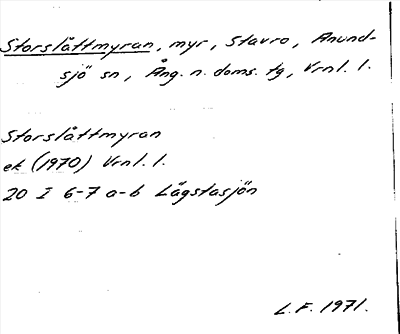 Storslåttmyran, myr, Stavro, Anund-
sjö sn, Ång. n. doms. tg, Vrnl. l.
Storslåttmyran
ek (1970) Vrnl. l.
20 I 6-7 a-b Lågstasjön
L.F. 1971.